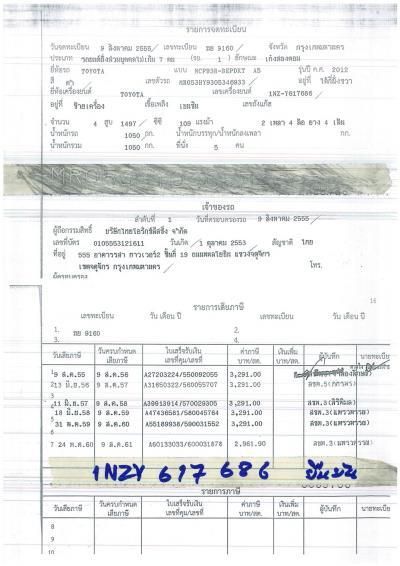 รายการจดทะเบียน
วันจดทะเบียน 9 สิงหาคม 2555 เลขทะเบียน 9160 จังหวัด กรุงเทพมหานคร
ประเภท รถยนต์นั่งส่วนบุคคลไม่เกิน 7 คน (รย. 1) ลักษณะ เก๋งสองตอน
ยี่ห้อรถ TOYOTA แบบ รุ่นปี ค.ศ. 2012
สี เลขตัวรถ อยู่ที่
ยี่ห้อเครื่องยนต์ TOYOTA เลขเครื่องยนต์ 1NZ-Y617686
อยู่ที่ เชื้อเพลิง เบนซิน เลขถังแก๊ส
จำนวน 4 สูบ 1497 ซีซี 109 แรงม้า 2 เพลา 4 ล้อ ยาง 4 เส้น
น้ำหนักรถ 1050 กก. น้ำหนักบรรทุก/น้ำหนักลงเพลา กก.
น้ำหนักรวม 1050 กก. ที่นั่ง 5 คน
เจ้าของรถ
ลำดับที่ 1 วันที่ครอบครองรถ 9 สิงหาคม 2555
ผู้ถือกรรมสิทธิ์ จำกัด
เลขที่บัตร 0105553121611 วันเกิด 1 ตุลาคม 2553 สัญชาติ ไทย
ที่อยู่ 555 ชั้นที่ 19 ถนนพหลโยธิน แขวงจตุจักร
เขตจตุจักร กรุงเทพมหานคร โทร.
16
รายการเสียภาษี
เลขทะเบียน วัน เดือน ปี เลขทะเบียน วัน เดือน ปี
1. 9160 2.
3. 4.
วันเสียภาษี วันครบกำหนดเสียภาษี ใบเสร็จรับเงินเลขที่คุม/เลขที่ ค่าภาษีบาท/สต. เงินเพิ่มบาท/สต. ผู้บันทึก นายทะเบียน
1 9 ส.ค.55 9 ส.ค.56 A27203224/550092055 3,291.00
2 13 มิ.ย.56 9 ส.ค.57 A31650322/560055707 3,291.00
3 11 มิ.ย.57 9 ส.ค.58 A39913914/570029305 3,291.00
18 มิ.ย.58 9 ส.ค.59 A47436561/580045764 3,291.00
31 พ.ค.59 9 ส.ค.60 A55189938/590031552 3,291.00
7 24 พ.ค.60 9 ส.ค.61 A60133033/600031878 2,961.90
1NZY 617686 ยืนยัน
รายการภาษี
วันเสียภาษี วันครบกำหนดเสียภาษี ใบเสร็จรับเงินเลขที่คุม/เลขที่ ค่าภาษีบาท/สต. เงินเพิ่มบาท/สต. ผู้บันทึก นายทะเบียน
8
9
10